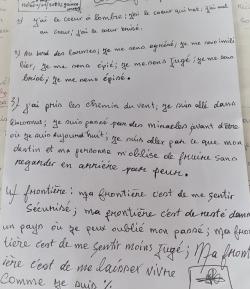 2) j'ai le cœur a l'ombre; j'ai le cœur qui bat; j'ai mal
au cœur; j'ai le cœur brisé.
2) Au bord des larmes; je me sens agressé; je me sens humili
lier; je me sens épié; je me sens Jugé; je me sens
brisé; je me sens épuisé.
3) j'ai pris les chemin du vent; je suis allé dans
l'inconnu; je suis passé par des miracles avant d'être
où je suis aujourd'huit; je suis aller par ce que mon
destin et ma personne m'oblise de fruire sans
regarder en arrière par peure.
4) frontière; Ma frontière c'est de me sentir
Sécurisé; ma frontière c'est de resté dans
un pays où je peux oublié mon passé; Ma fron
tière c'est de me sentir moins Jugé; Ma front
ière c'est de me laisser vivre
Comme je suis